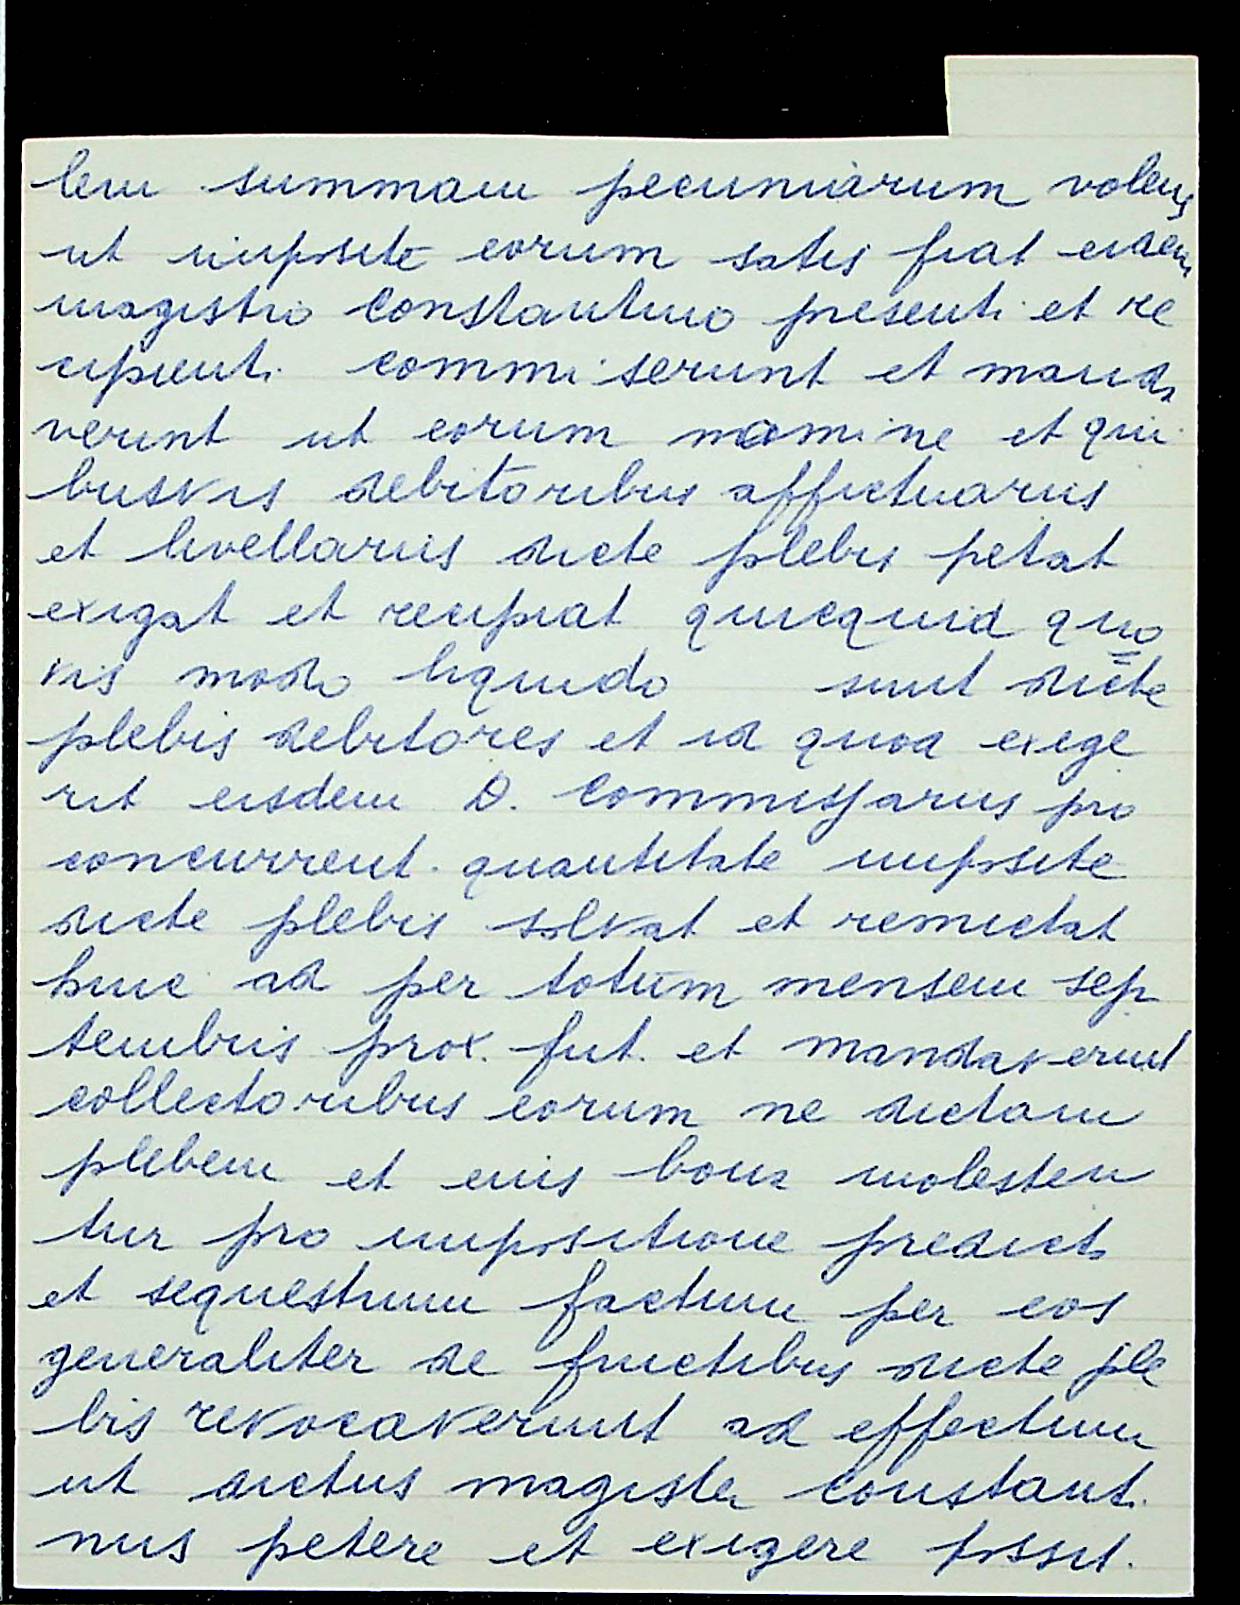 lem summam pecuniarum volens
ut imposite eorum satis fiat eidem
magistro Constantino presenti et re
cipienti commiserunt et manda
verint ut eorum nomine et qui
busvis debitoribus affictuariis
et livellariis dicte plebis petat
exigat et recipiat quicquid quo
vis modo liquido sunt dicte
plebis debitores et id quod exege
rit eisdem D. Commissariis pro
concurrent. quantitate imposite
dicte plebis solvat et remictat
hinc ad per totum mensem sep
tembris prox. fut. et mandaverunt
collectoribus eorum ne dictam
plebem et eius bona molesten
tur pro impositione predicta
et sequestrum factum per eos
generaliter de fructibus dicte ple
bis revocaverunt ad effectum
ut dictus magister Constanti
nus petere et exigere possit.